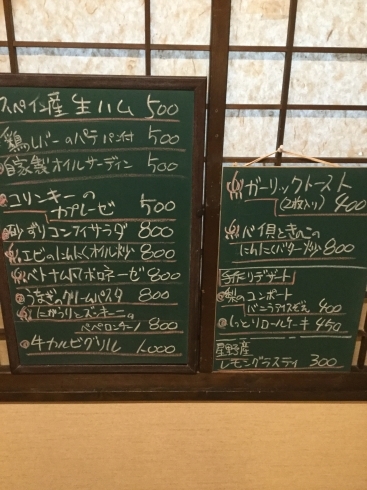 スペイン産生ハム 500
鶏レバーのパテ パン付 500
自家製オイルサーディン 500
コリンキーの
カプレーゼ 500
砂ずりコンフィサラダ 800
エビのにんにくオイル炒 800
ベトナム風ボロネーゼ 800
うなぎのクリームパスタ 800
にがうりとズッキーニの
ペペロンチーノ 800
牛カルビグリル 1,000
ガーリックトースト
(2枚入り) 400
バイ貝ときのこの
にんにくバター炒 800
手作りデザート
梨のコンポート
バニラアイス添え 400
しっとりロールケーキ 450
星野産
レモングラスティ 300